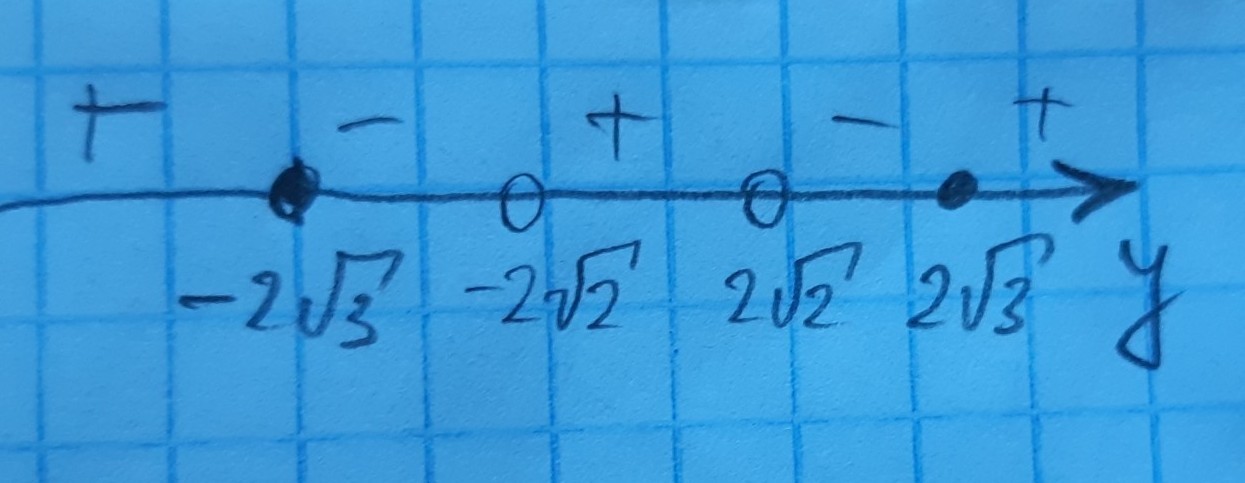 + − + − +
−2√3 −2√2 2√2 2√3 y